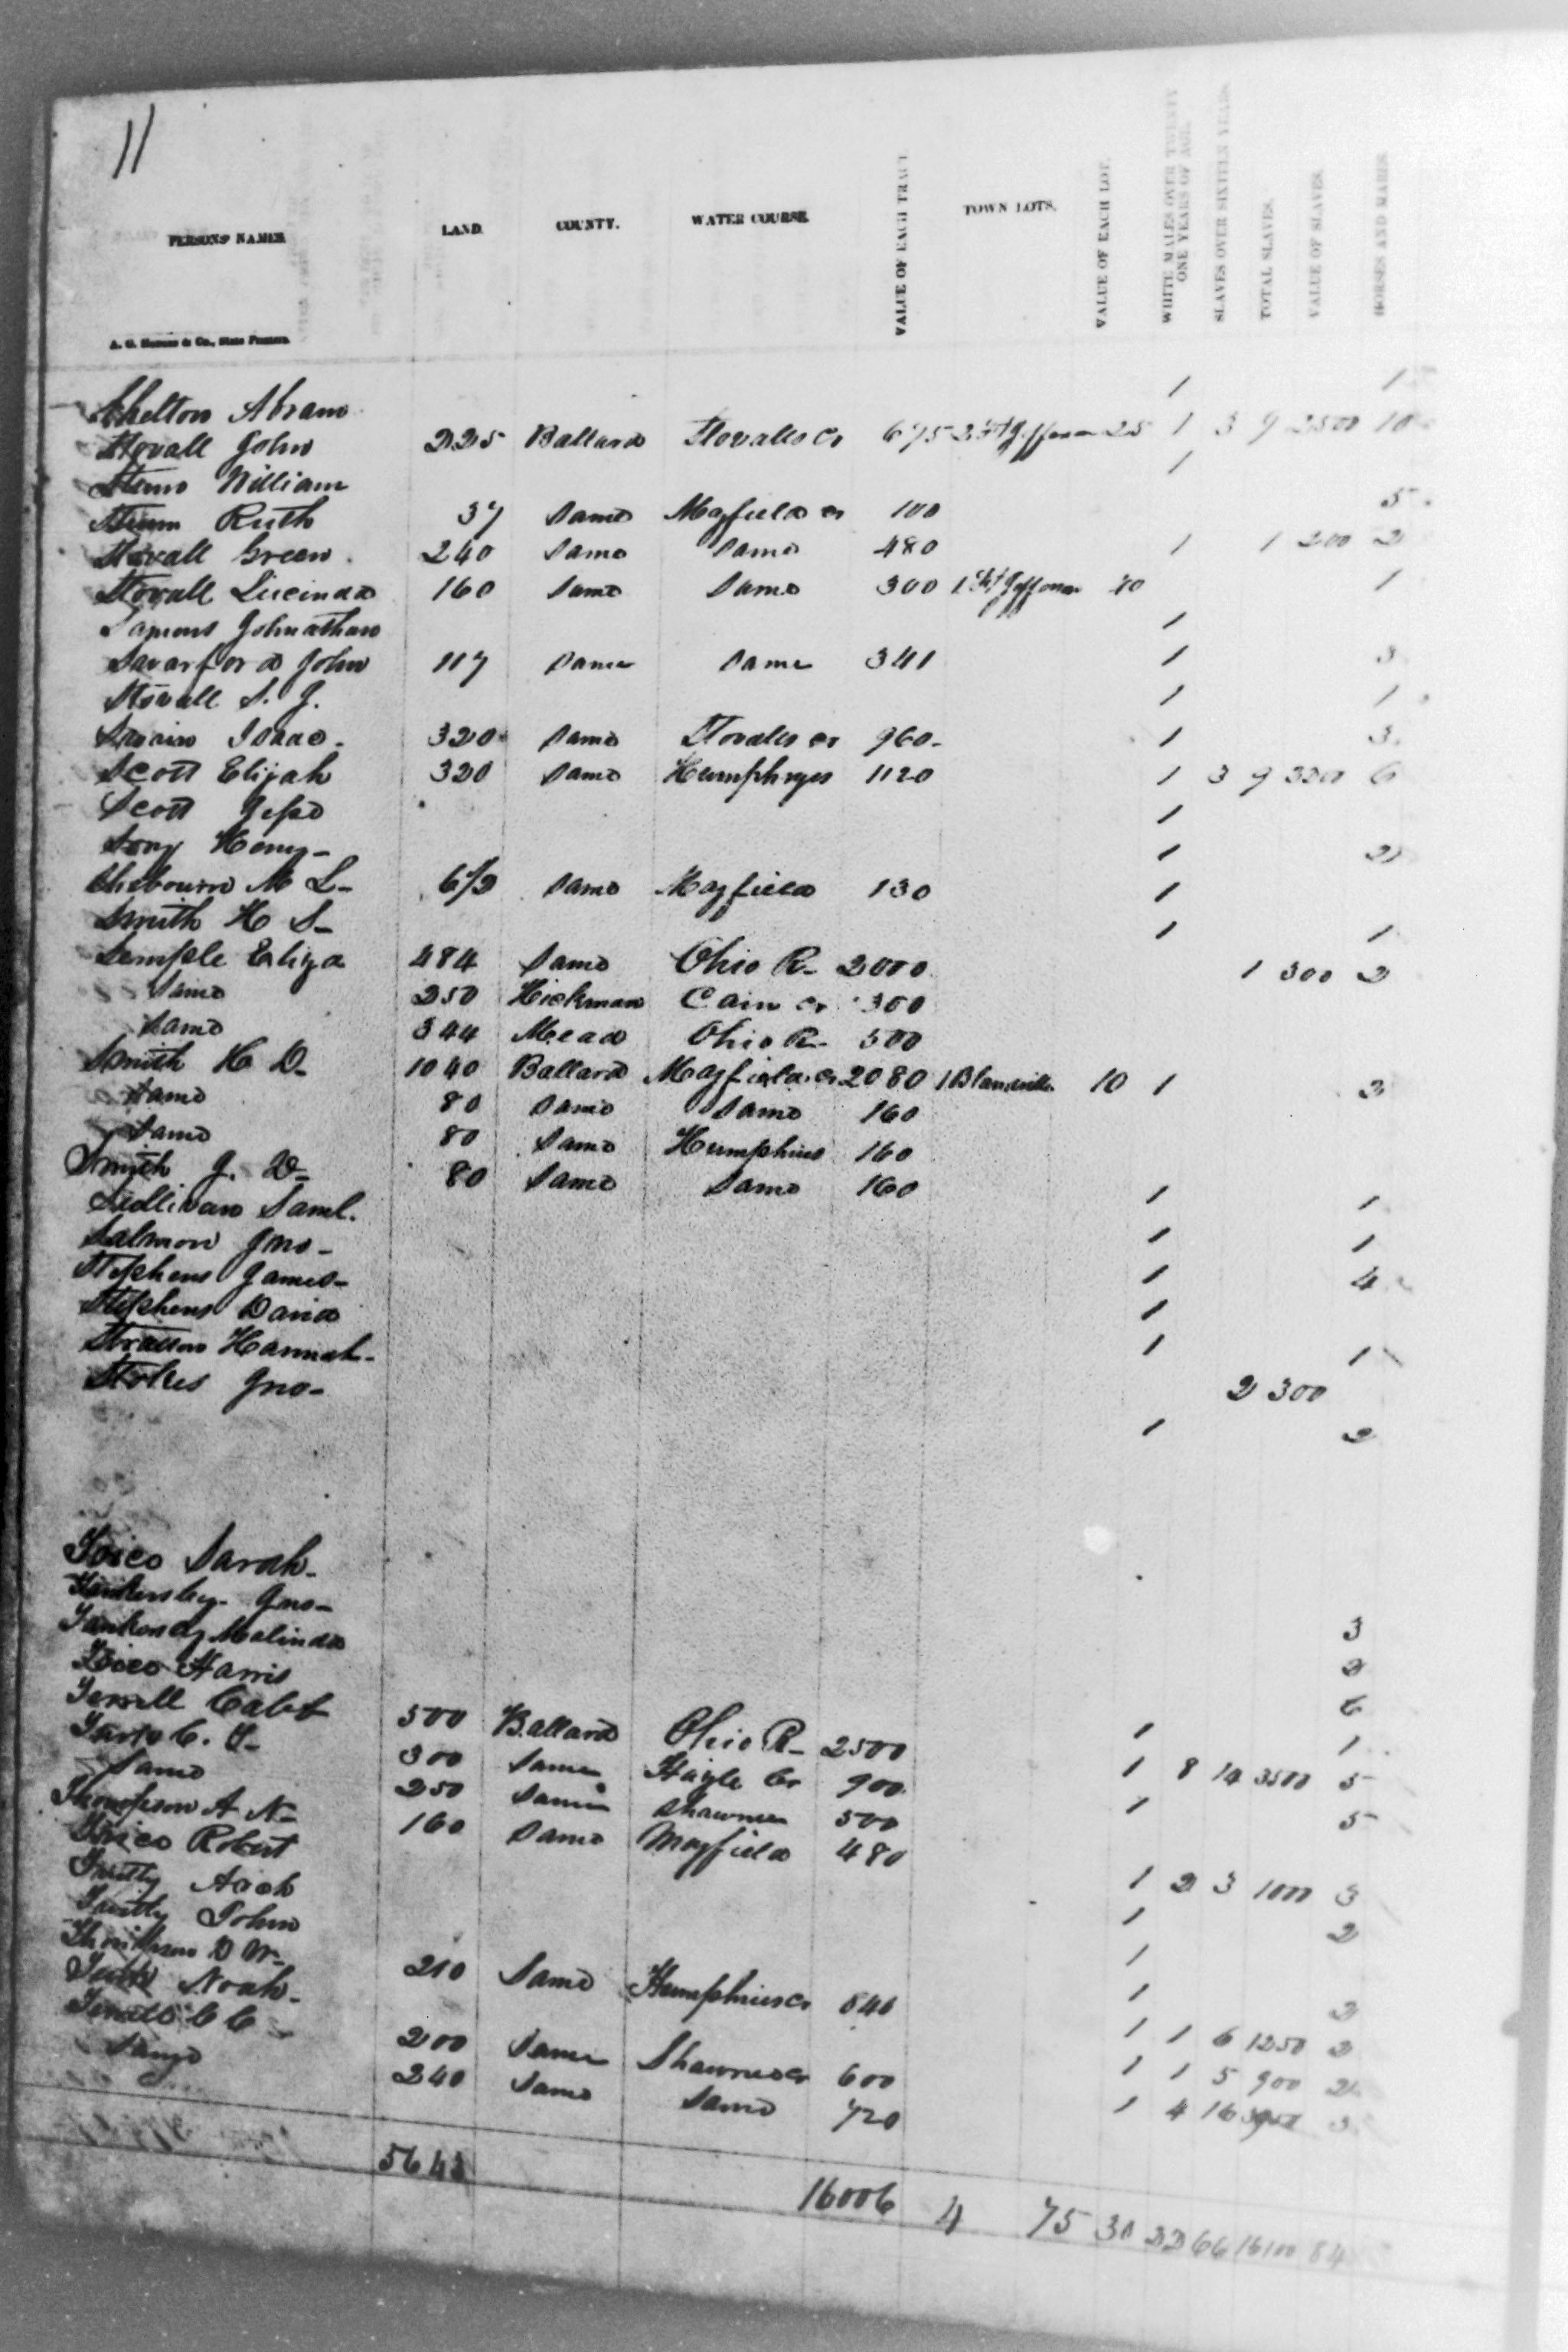 11
PERSONS' NAMES. LAND. COUNTY. WATER COURSE. VALUE OF EACH TRACT. TOWN LOTS. VALUE OF EACH LOT. WHITE MALES OVER TWENTY ONE YEARS OF AGE. SLAVES OVER SIXTEEN YEARS. TOTAL SLAVES. VALUE OF SLAVES. HORSES AND MARES.
A. G. Hodges & Co., State Printers.
Shelton Abram 1 1
Stovall John 225 Ballard Stovalls Cr 675 2 Ft Jefferson 25 1 3 9 2500 10
William 1
Ruth 37 Same Mayfield cr 100 5
Stovall Green 240 Same Same 480 1 1 200 2
Stovall Lucinda 160 Same Same 300 1 Ft Jefferson 40 1
Johnathan 1
John 117 Same Same 341 1 3
Stovall S. J. 1 1
Swain Isaac 320 Same Stovalls cr 960 1 3
Scott Elijah 320 Same Humphreys 1120 1 3 9 6
Scott Jesse 1
Song Henry 1 2
M L 6 1/2 Same Mayfield 130 1
Smith H S 1 1
Semple Eliza 484 Same Ohio R 2000 1 300 2
Same 250 Hickman Cain cr 300
Same 344 Mead Ohio R 500
Smith H D 1040 Ballard Mayfield cr 2080 1 Blandville 10 1 2
Same 80 Same Same 160
Same 80 Same Humphries 160
Smith J. D 80 Same Same 160 1 1
Sullivan Saml. 1 1
Salmon Jno 1 4
Stephens James 1
Stephens David 1 1
Hannah 2 300
Stokes Jno 1 2
Trice Sarah 3
Tankersley Jno 2
Tankersley Malinda 6
Trice Harris 1 1
Terrell Caleb 500 Ballard Ohio R 2500 1 8 14 3500 5
C. S 300 Same Cr 900 1 5
Same 250 Same Shawnee 500
Thompson A N 160 Same Mayfield 480 1 2 3 1000 3
Trice Robert 1 2
1
John 1 2
D W 210 Same Humphries cr 840 1 1 6 1250 2
Noah 1 1 5 900 2
Terrell C C 200 Same Shawnee cr 600 1 4 16 3
Same 240 Same Same 720
5643 16006 4 75 30 22 66 16100 84